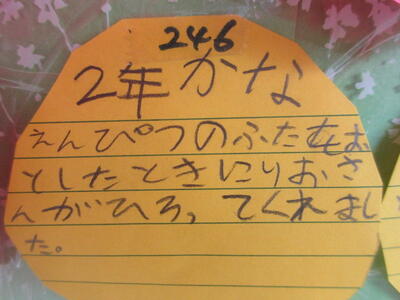 246
2年かな
えんぴつのふたをお
としたときにりおさ
んがひろってくれまし
た。